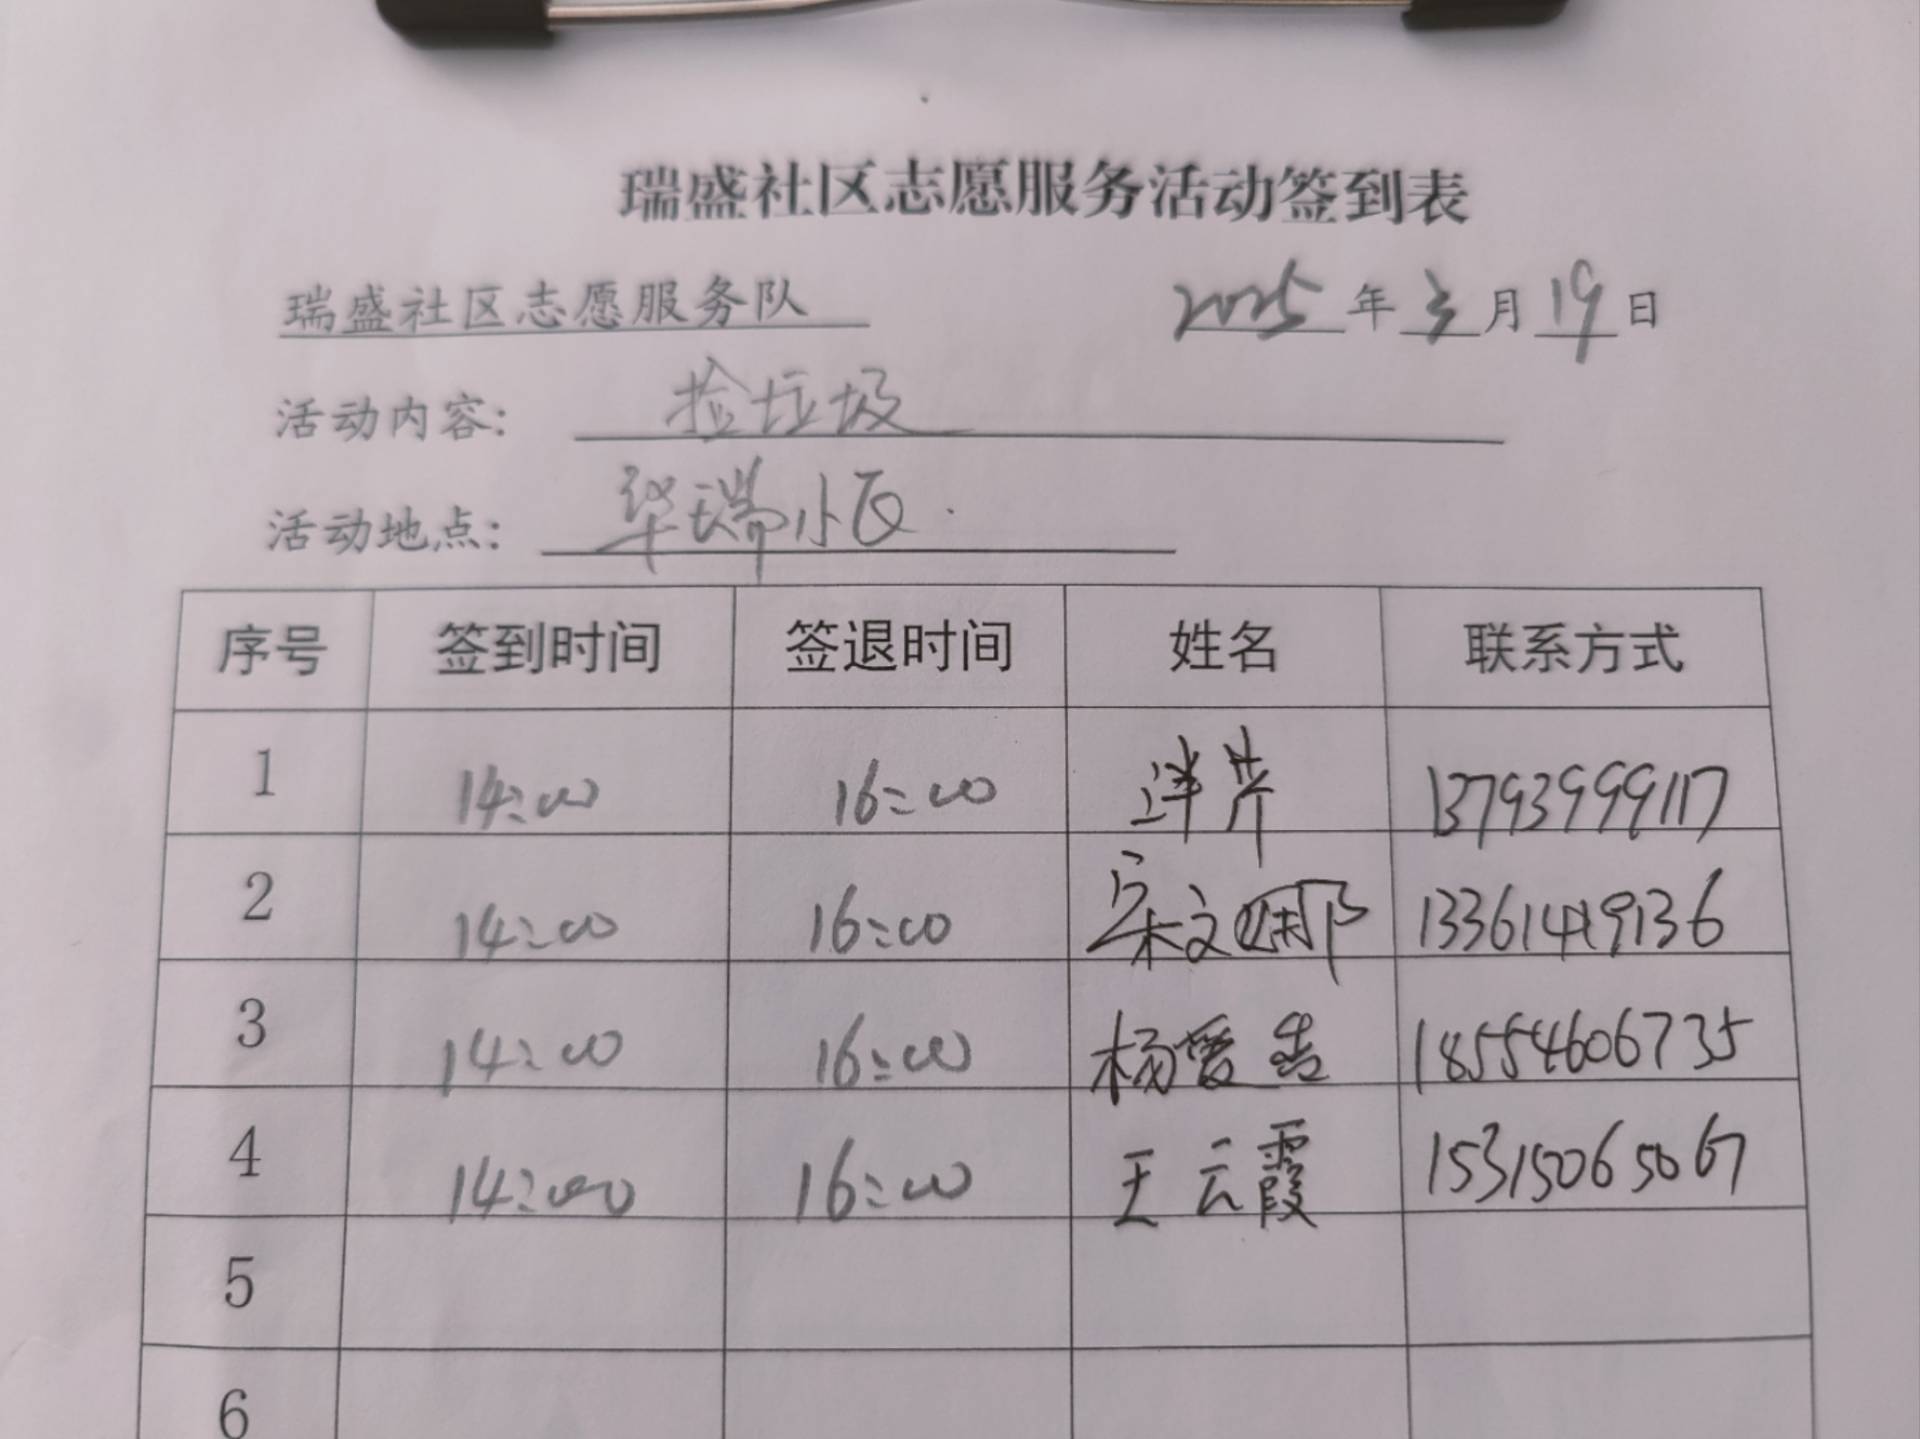 瑞盛社区志愿服务活动签到表
瑞盛社区志愿服务队 2025年3月19日
活动内容： 捡垃圾
活动地点： 华瑞小区.
序号 签到时间 签退时间 姓名 联系方式
1 14:00 16:00 13793999117
2 14:00 16:00 宋文娜 13361419136
3 14:00 16:00 杨爱 18554606735
4 14:00 16:00 王云霞 15315065067
5
6